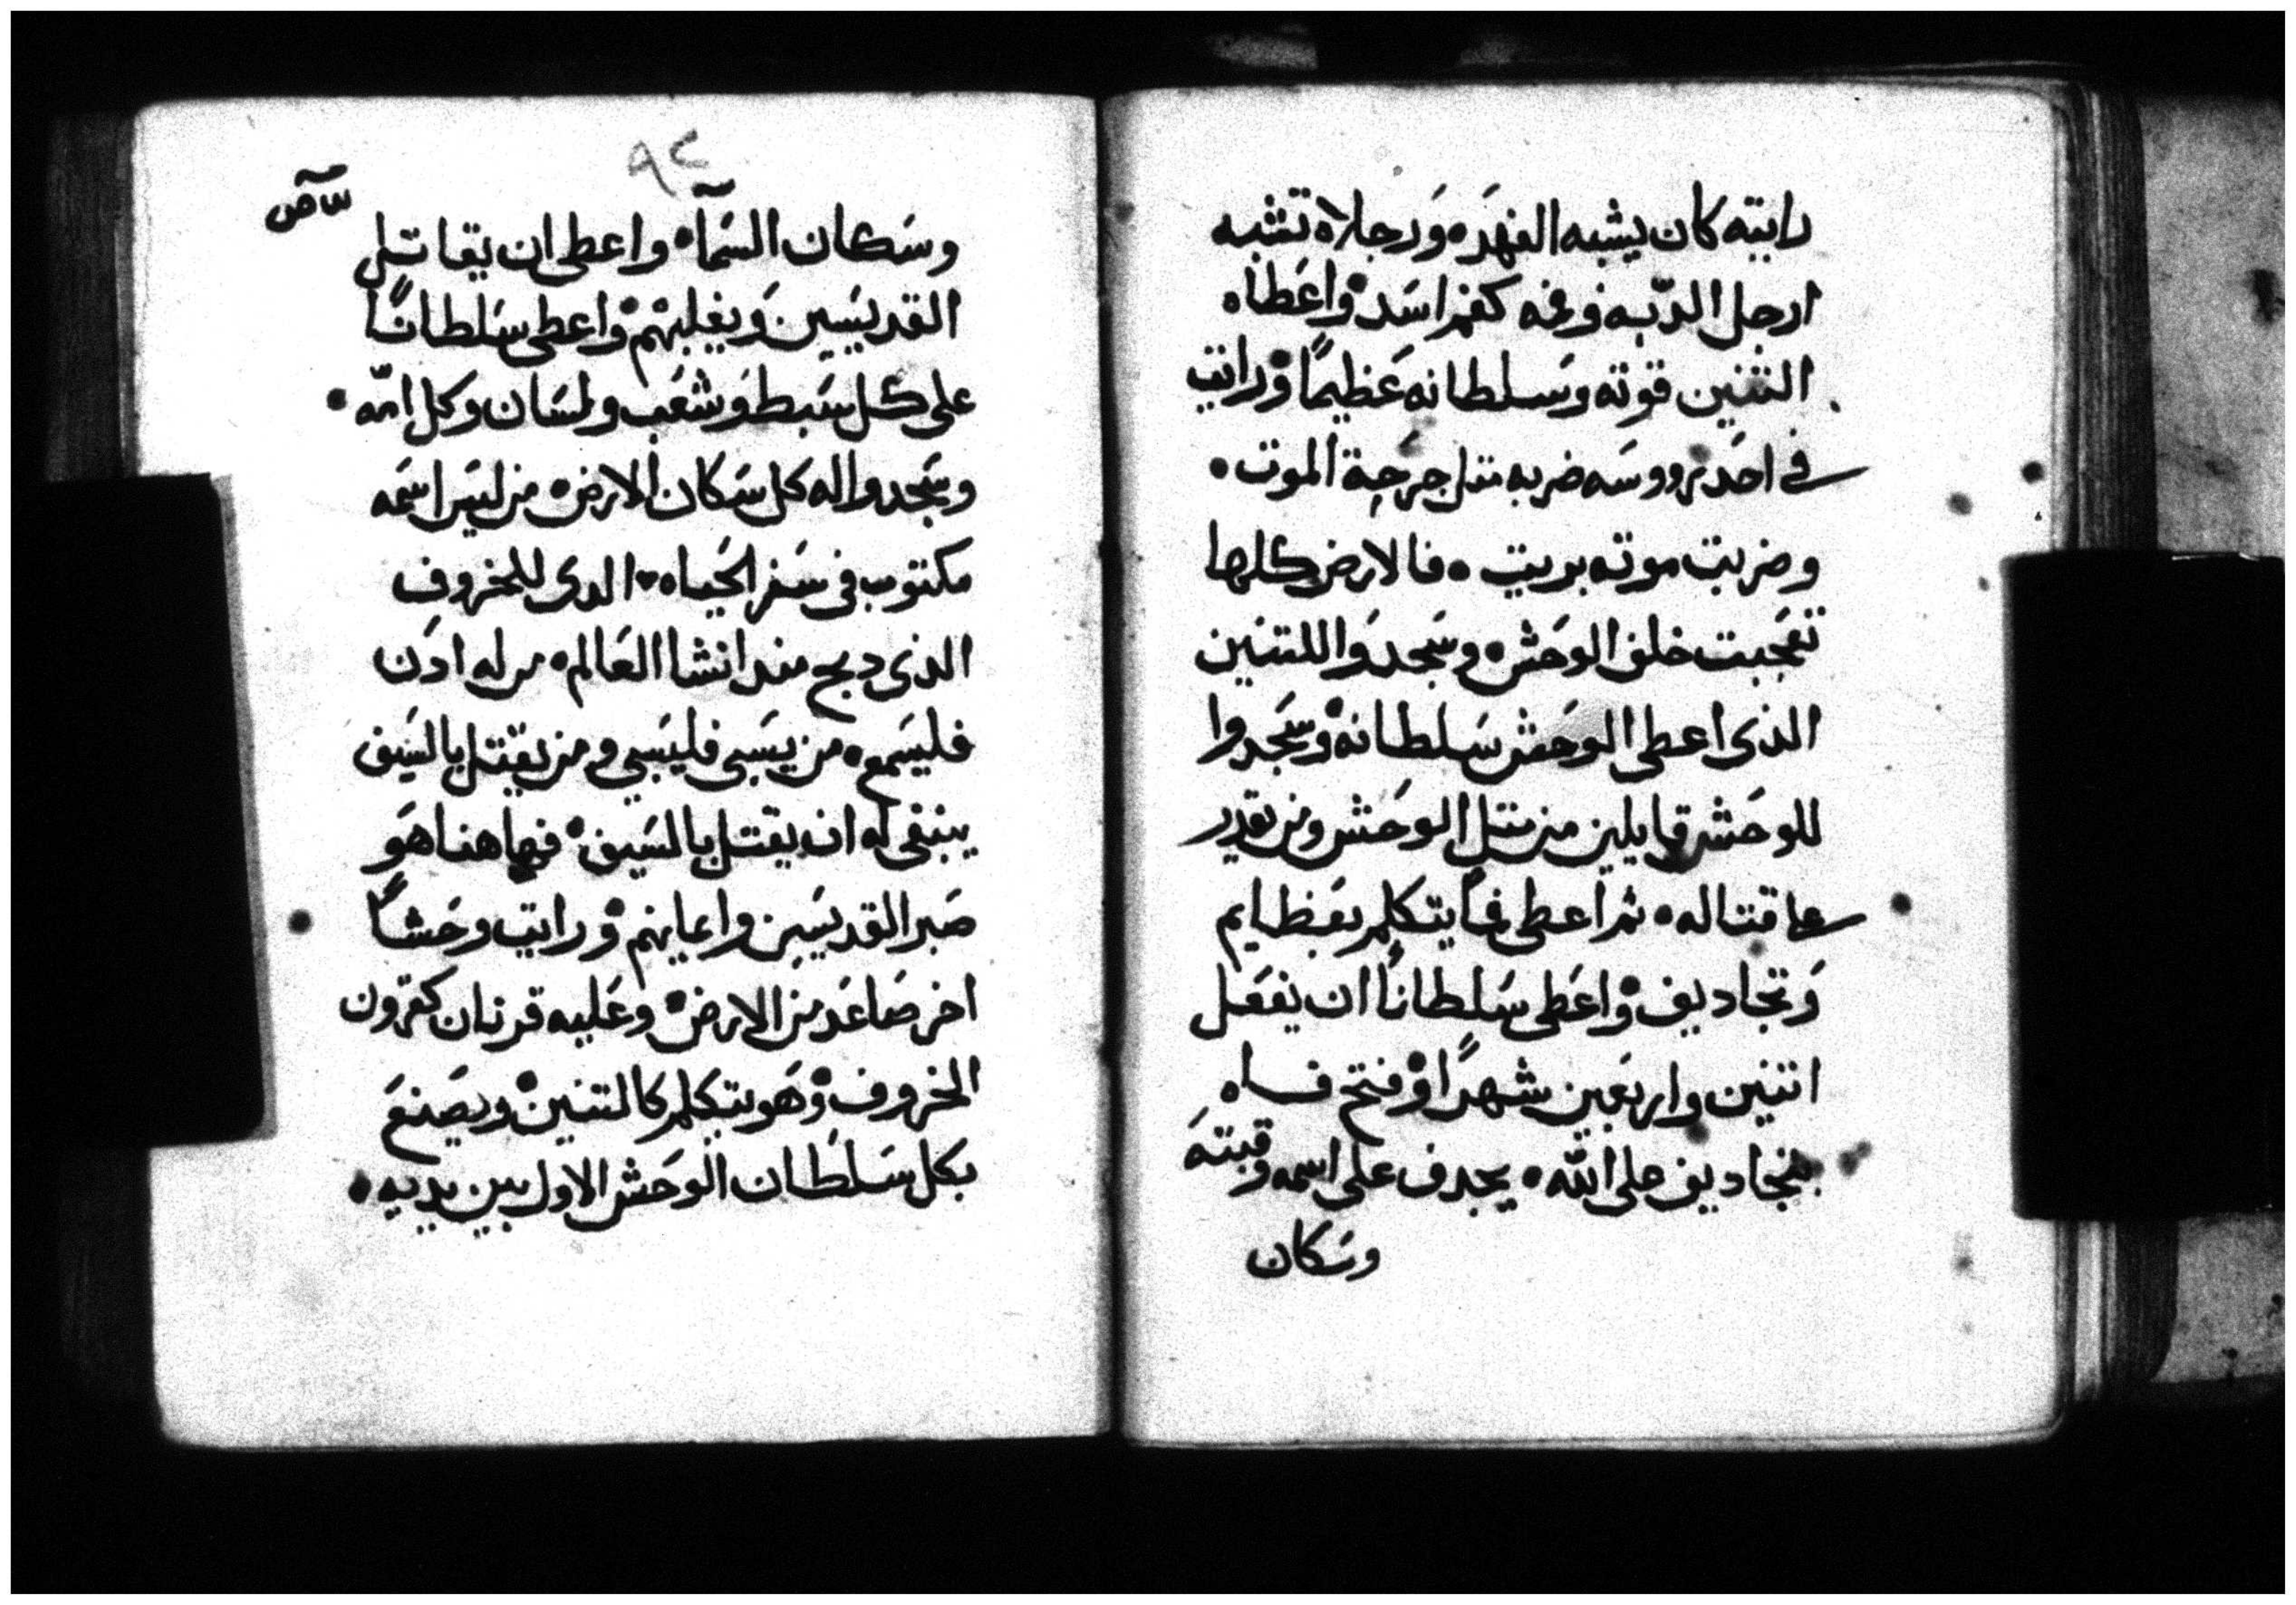 رايته كان يشبه الفهَده وَرجلاه تشبه
ارجل الدّبه وفمه كفم اسَد واعَطاه
التنين قوته وسَلطانه عَظيمًا ورايت
في احَد رووسَه ضربه مثل جرَحة الموت
وضربت موته بريت فالارض كلها
تعَجبت خلف الوحَش وسَجدوَا للتنين
الذى اعطى الوحَش سَلطانه وسَجدوا
للوحَش قايلين من مثل الوحَش ومن يقدر
على قتاله ثم اعطى فمًا يتكلم بعَظايم
وَتجاديف واعَطى سَلطانًا ان يفعَل
اتنين واربعَين شهرًا وفتح فاه
بتجاديف على الله يجدف على اسمه وقبتهَ
وسَكان
٩٢
وسَكان السَمآ واعطى ان يقاتل
القديسَين وَيغلبهم واعطى سَلطانًا
على كل سَبط وَشعَب ولسَان وكل امّه
وسَجدوا له كل سَكان الارض من ليسَ اسَمه
مكتوب في سَفر الحيَاه الدى للخروف
الذى دبح مند انشا العَالم من له ادَن
فليسَمع من يسَبى فليسَبي ومن يقتل بالسَيف
ينبغى له ان يقتل بالسَيف فهاهنا هوَ
صَبر القديسَين وايمانهم ورايت وحَشاً
اخر صَاعَد من الارض وعَليه قرنان كقرون
الخروف وَهَو يتكلم كالتنين ويصَنعَ
بكل سَلطَان الوحَش الاول بين يديه